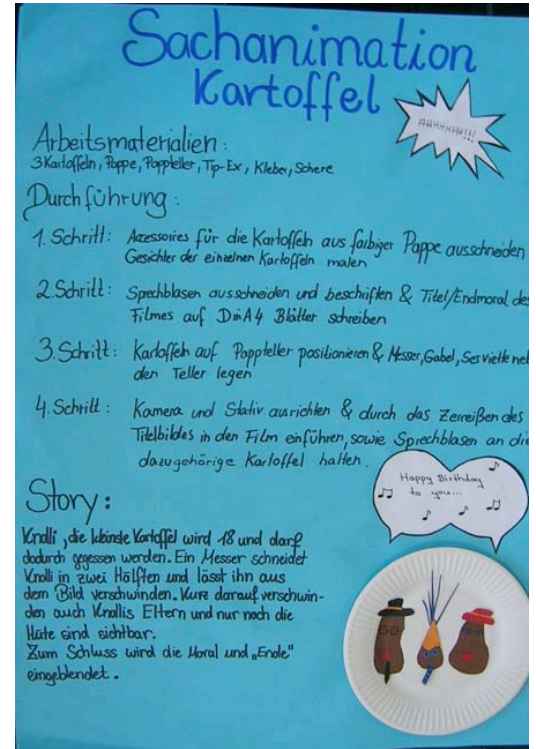 Sachanimation
Kartoffel
AHHHHH!!!
Arbeitsmaterialien:
3 Kartoffeln, Pappe, Pappteller, Tip-Ex, Kleber, Schere
Durchführung:
1. Schritt: Accessoires für die Kartoffeln aus farbiger Pappe ausschneiden
Gesichter der einzelnen Kartoffeln malen
2. Schritt: Sprechblasen ausschneiden und beschriften & Titel/Endmoral des
Filmes auf DinA4 Blätter schreiben
3. Schritt: Kartoffeln auf Pappteller positionieren & Messer, Gabel, Serviette neb
den Teller legen
4. Schritt: Kamera und Stativ ausrichten & durch das Zerreißen des
Titelbildes in den Film einführen, sowie Sprechblasen an die
dazugehörige Kartoffel halten.
Happy Birthday
to you...
Story:
Knolli, die kleinste Kartoffel wird 18 und darf
dadurch gegessen werden. Ein Messer schneidet
Knolli in zwei Hälften und lässt ihn aus
dem Bild verschwinden. Kurz darauf verschwin-
den auch Knollis Eltern und nur noch die
Hüte sind sichtbar.
Zum Schluss wird die Moral und „Ende"
eingeblendet.